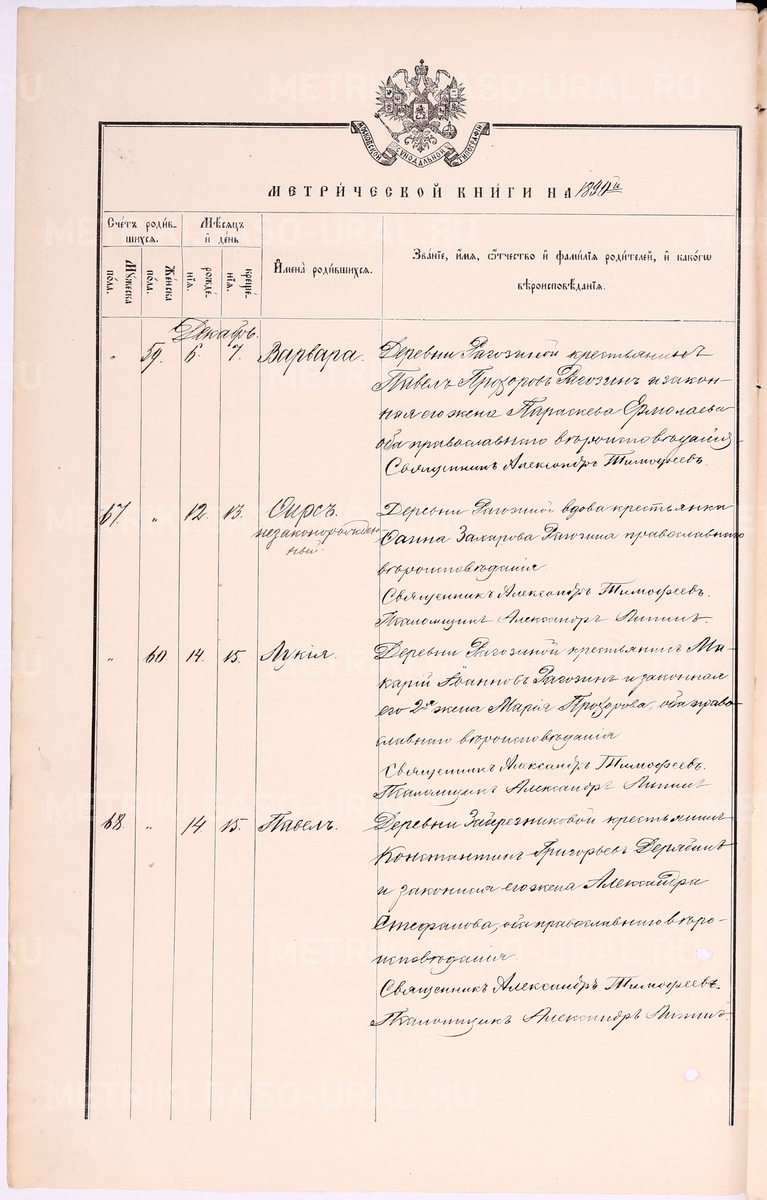 МОСКОВСКОЙ СѴНОДАЛЬНОЙ ТИПОГРАФІИ
МЕТРИ́ЧЕСКОЙ КНИ́ГИ НА 1894й
Сче́тъ роди́в-
шихся.
М҃ѣсяцъ
и҆ де́нь
И҆мена̀ роди́вшихся.
Зва́нїе, и҆́мя, ѻ҆́тчество и҆ фами́лїя роди́телей, и҆ како́гѡ
вѣроисповѣ́данїя.
Мꙋ́жеска
по́ла.
Же́нска
по́ла.
рожде́-
нїя.
креще́-
нїя.
Декабрь.
" 59. 6. 7. Варвара. Деревни Рагозиной крестьянинъ
Павелъ Прохоровъ Рагозинъ и закон-
ная его жена Параскева Ермолаева
оба православнаго вѣроисповѣданія
Священникъ Александръ Тимофеевъ.
67. " 12. 13. Ѳирсъ. Деревни Рагозиной вдова крестьянка
незаконорожден-
ный.
Ѳаина Захарова Рагозина православнаго
вѣроисповѣданія
Священникъ Александръ Тимофеевъ.
Псаломщикъ Александръ
" 60 14. 15. Лукія. Деревни Рагозиной крестьянинъ Ма-
карій Іоанновъ Рагозинъ и законная
его 2я жена Марія Прохорова, оба право-
славнаго вѣроисповѣданія
Священникъ Александръ Тимофеевъ.
Псаломщикъ Александръ
68. " 14 15. Павелъ. Деревни крестьянинъ
Константинъ Григорьевъ Дерябинъ
и законная его жена Александра
Стефанова, оба православнаго вѣро-
исповѣданія.
Священникъ Александръ Тимофеевъ.
Псаломщикъ Александръ
METRIKI.GASO-URAL.RU